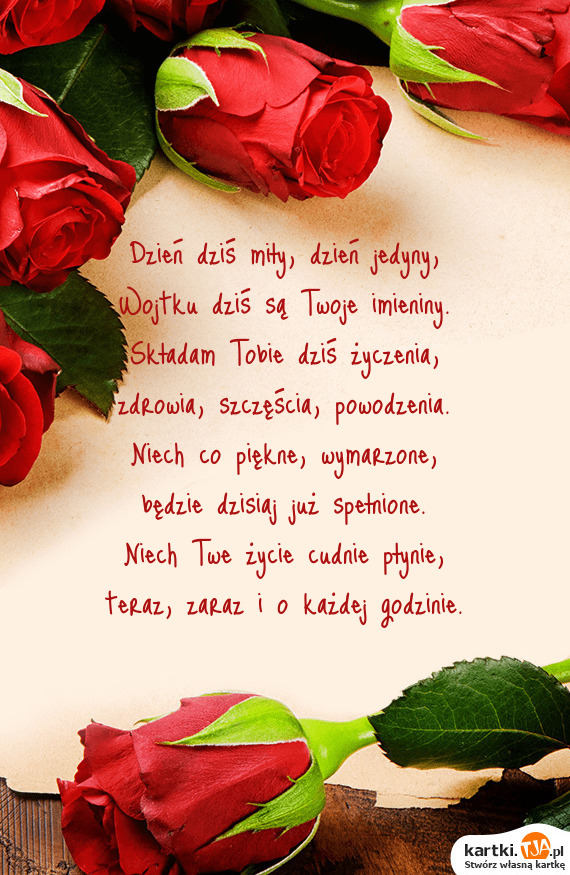 Dzień dziś miły, dzień jedyny,
Wojtku dziś są Twoje imieniny.
Składam Tobie dziś życzenia,
zdrowia, szczęścia, powodzenia.
Niech co piękne, wymarzone,
będzie dzisiaj już spełnione.
Niech Twe życie cudnie płynie,
teraz, zaraz i o każdej godzinie.
kartki.TJA.pl
Stwórz własną kartkę